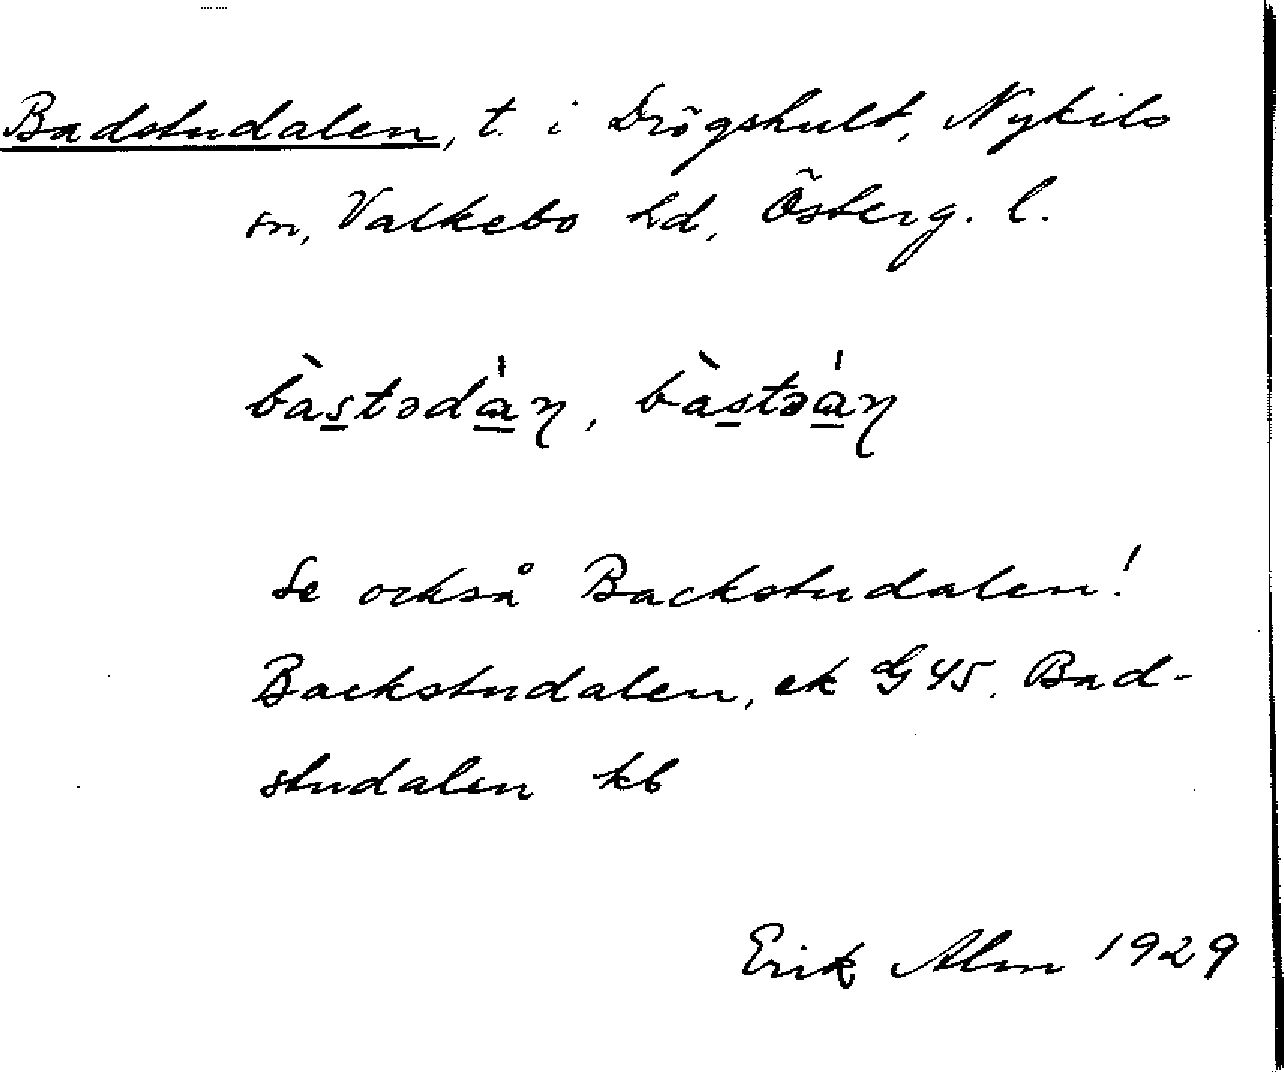 Badstudalen, t. i Drögshult, Nykils
sn, Valkebo hd, Österg. l.
bàs̲təda̲̍ŋ, bàs̲təa̲̍ŋ
Se också Backstudalen!
Backstudalen, ek G 45. Bad-
studalen kb
Erik Alm 1929